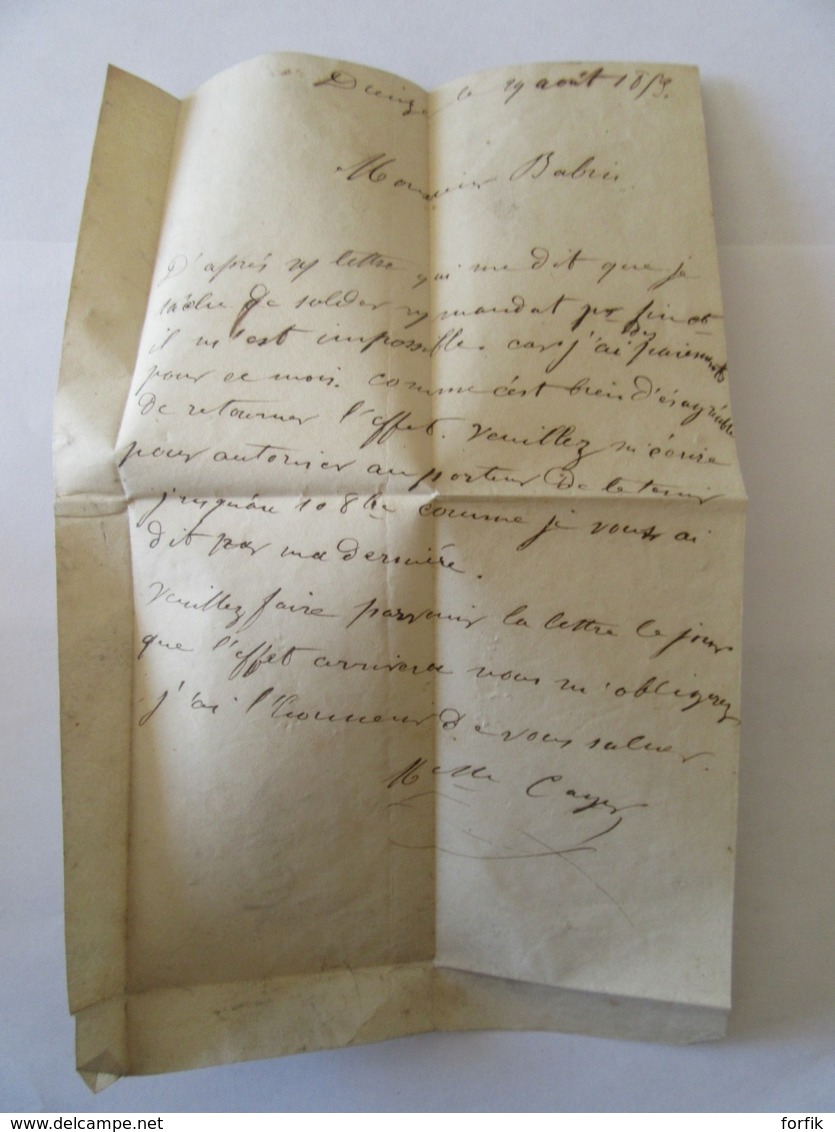 Dieuze le 29 août 1853.
Monsieur Babin
D'après vs lettre qui me dit que je
de solder vs mandat pr fin ct
il m'est impossible. car j'ai des paiements
pour ce mois. comme c'est bien désagréable
de retourner l'effet. veuillez m'écrire
pour autoriser au porteur de le tenir
jusqu'au 10 8bre comme je vous ai
dit par ma dernière.
Veuillez faire parvenir la lettre le jour
que l'effet arrivera vous m'obligerez
j'ai l'honneur de vous saluer.
Mlle Cayer
delcampe.net
forfik